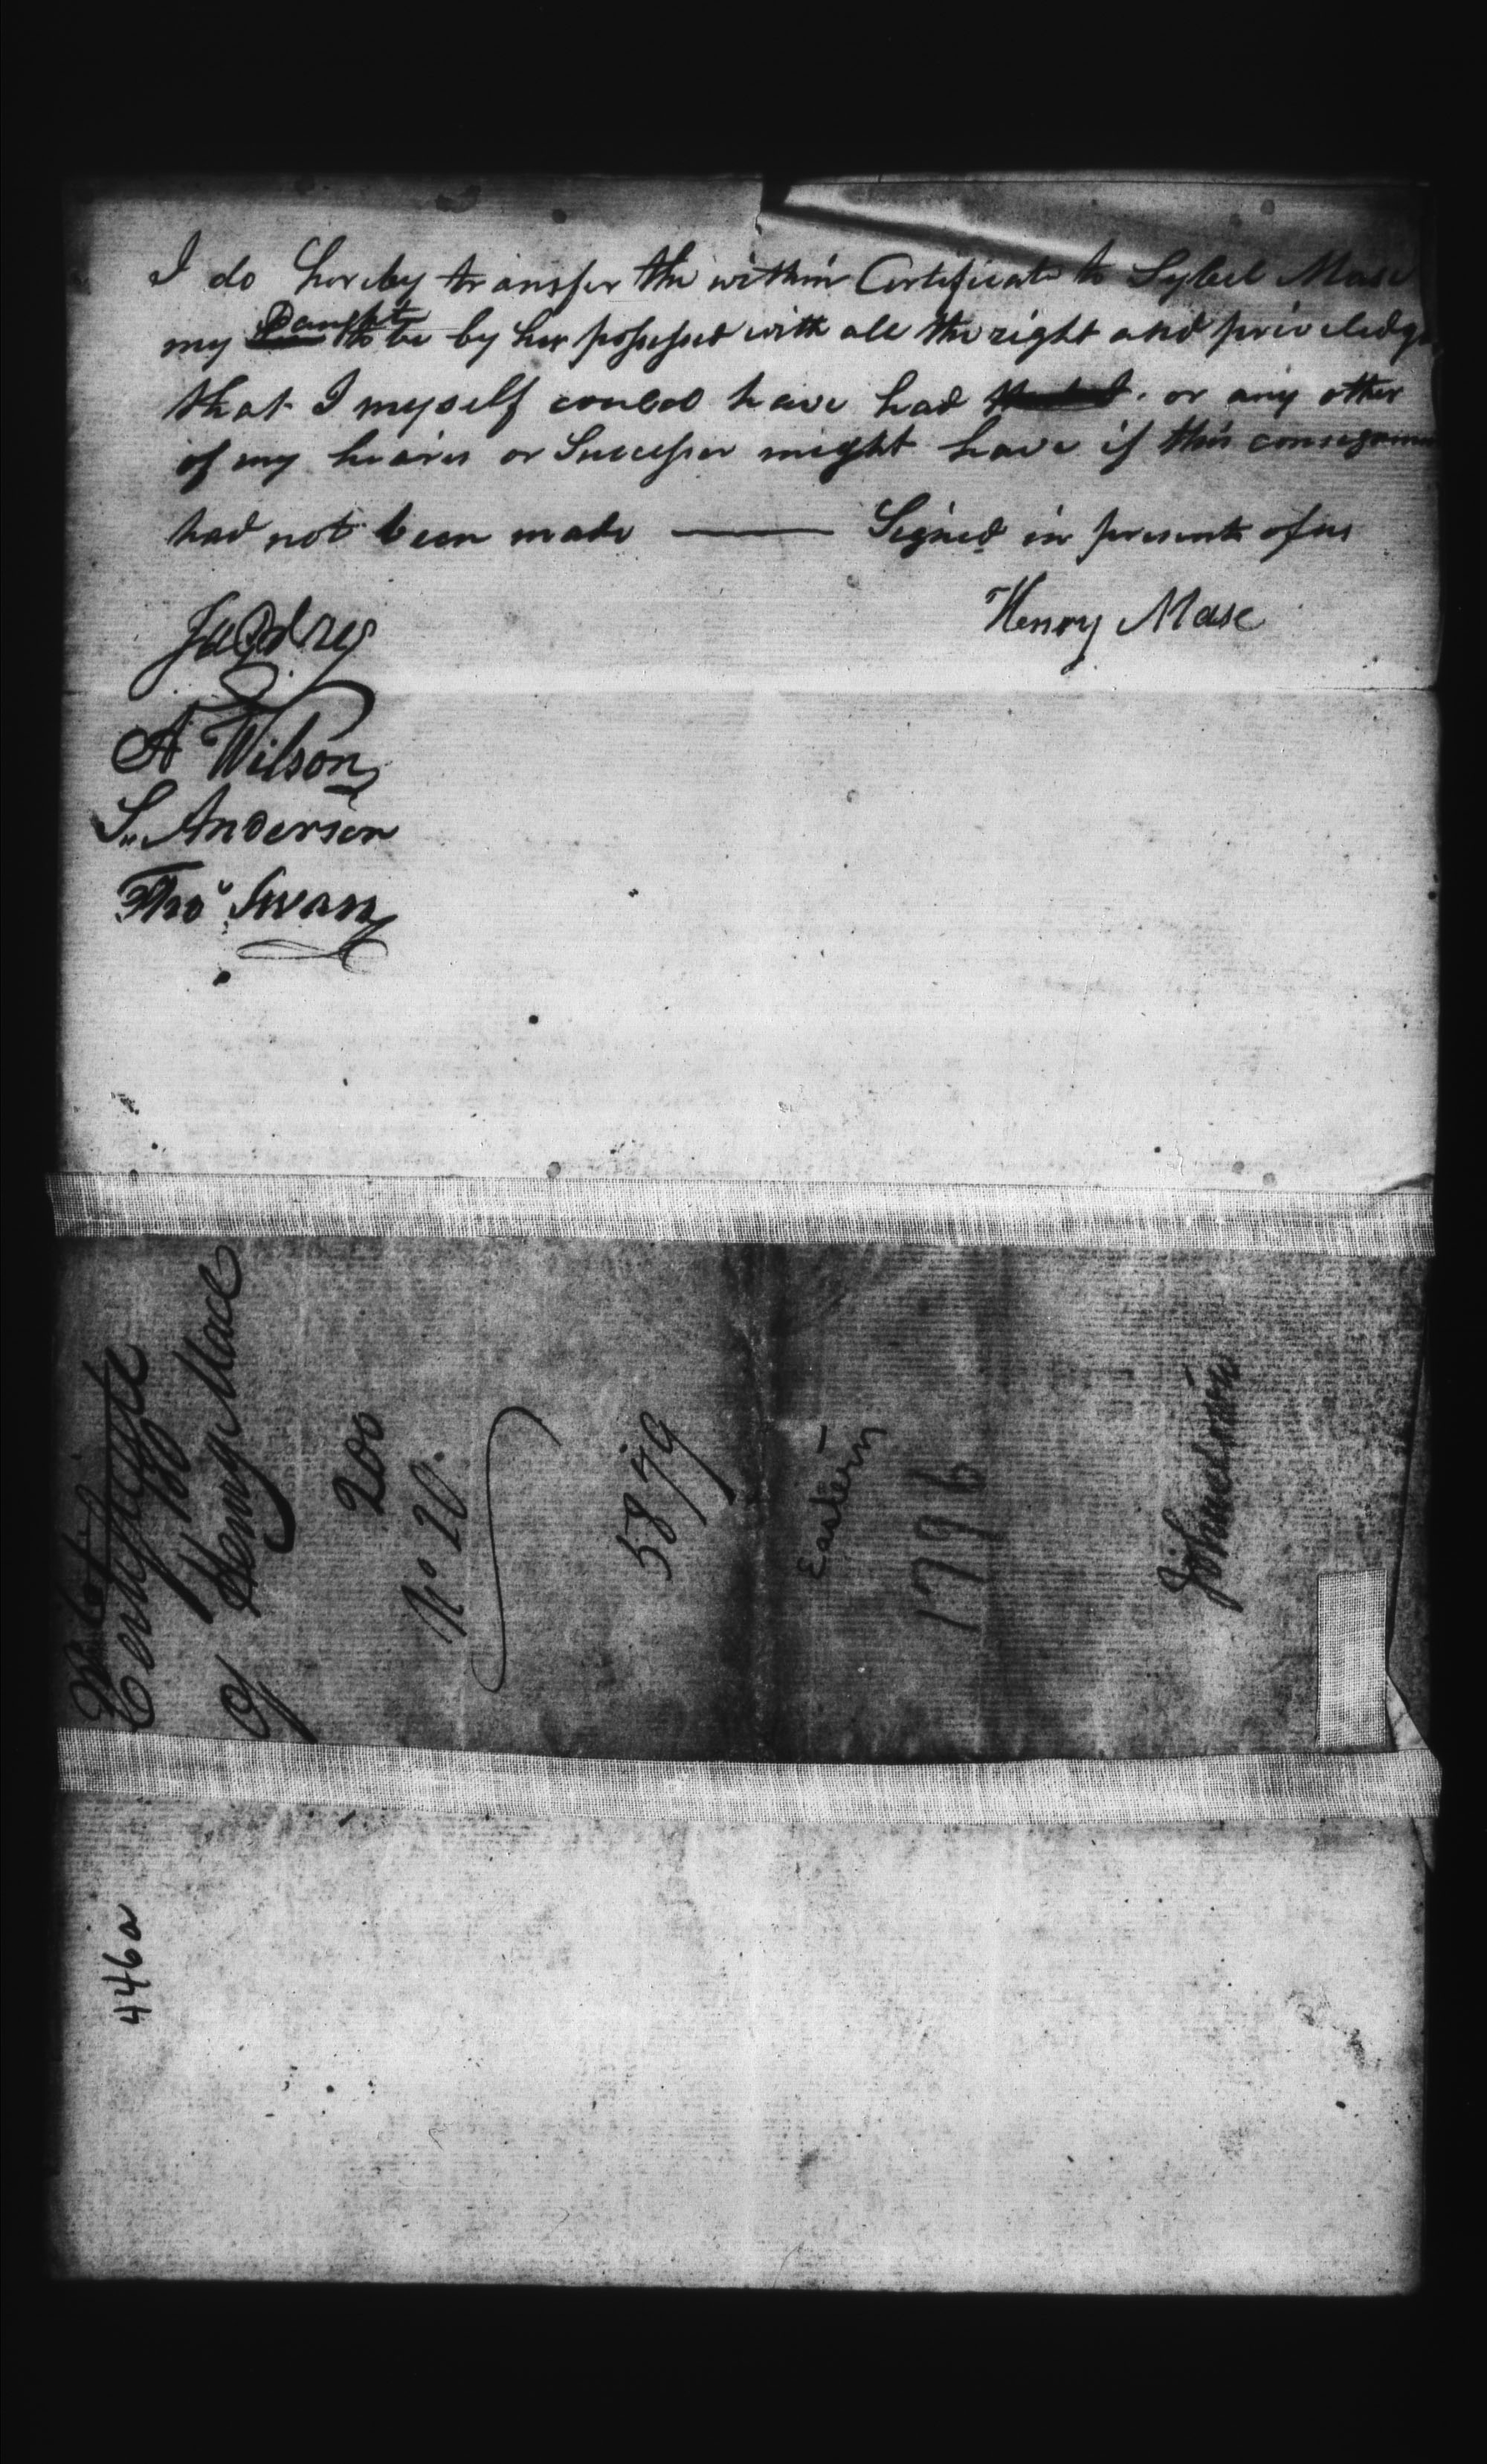 I do hereby transfer the within Certificate to Sybel Mase
my Daught to be by her possessed with all the right and priveledge
that I myself could have had or any other
of my heairs or Successer might have if this consignm
had not been made — Signed in presents of us
Henry Mase
A Wilson
S. Anderson
Thos Swann
Certificate
of Henry Mace
200
No 20
5879
Eastern
1796
Johnston
446a